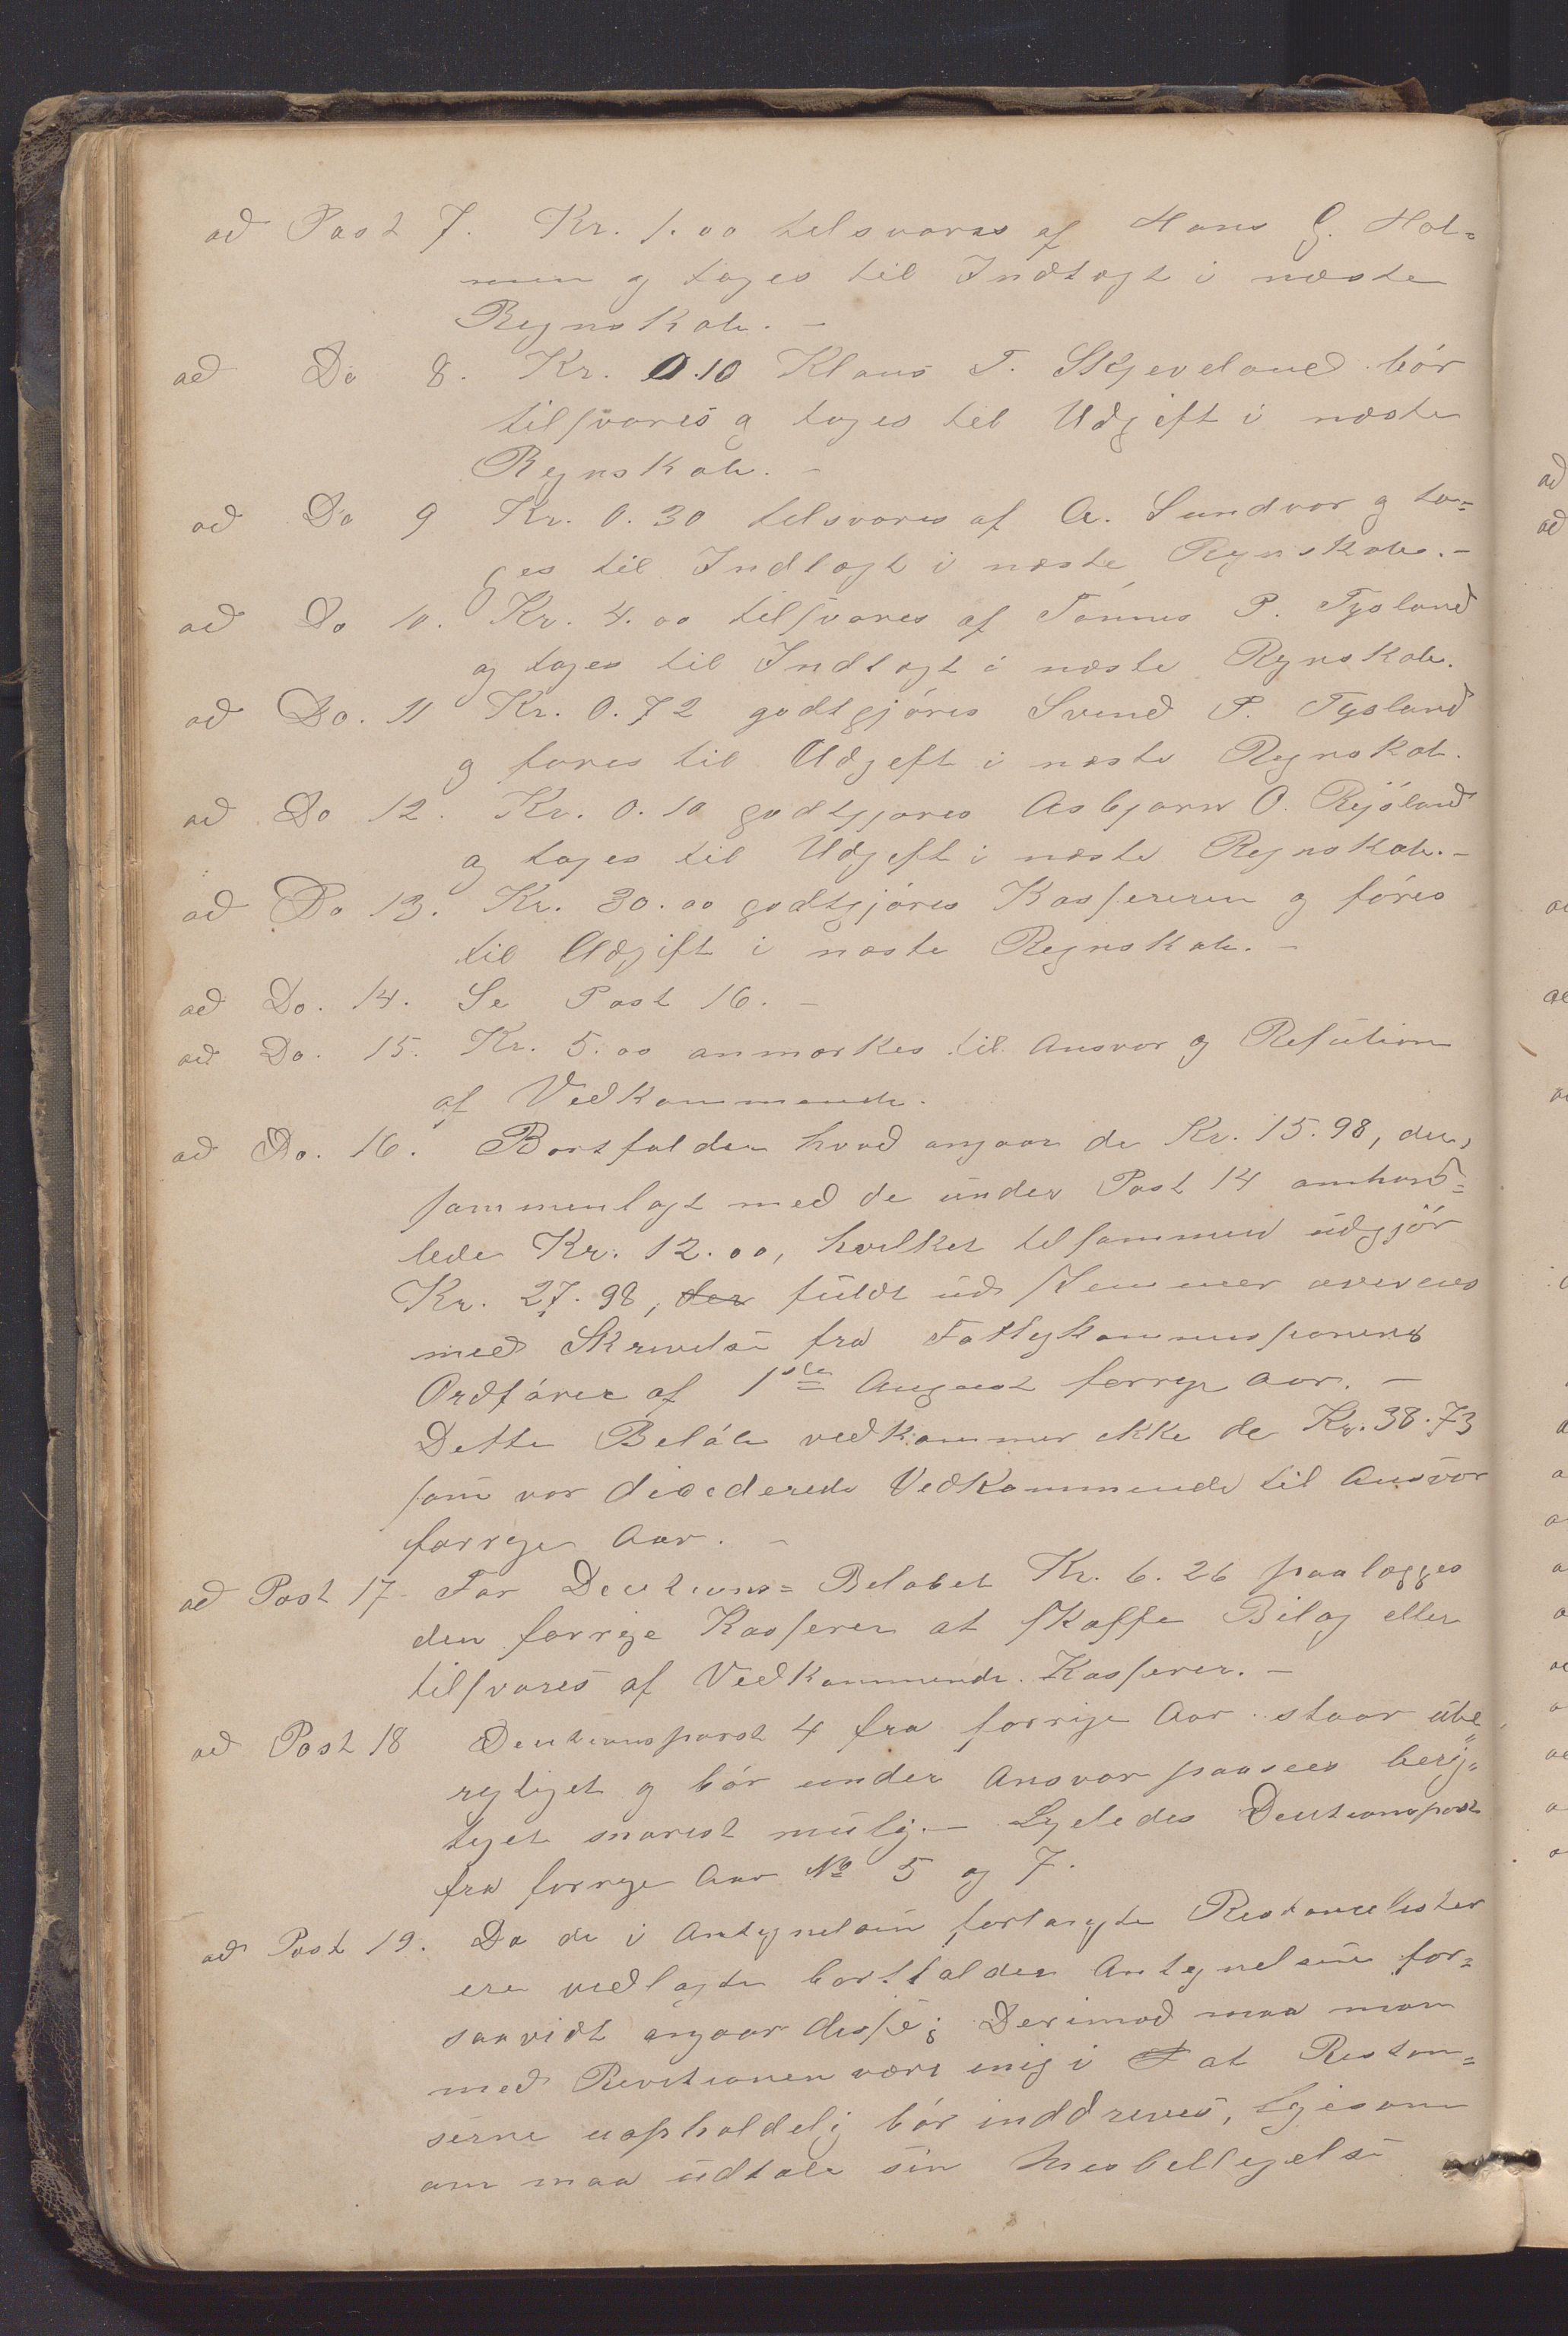 ad Post 7. Kr. 1.00 tilsvares af Hans G. Hol=
men og tages til Indtægt i næste
Regnskab. –
ad Do 8. Kr. 0.10 Klaus T. Skjeveland bør
tilsvares og tages til Udgift i næste
Regnskab. –
ad Do 9 Kr. 0.30 tilsvares af A. Sundvor og ta=
ges til Indtægt i næste Regnskab. –
ad Do 10. Kr. 4.00 tilsvares af Tønnes P. Tysland
og tages til Indtægt i næste Regnskab.
ad Do. 11 Kr. 0.72 godtgjøres Svend P. Tysland
og føres til Udgift i næste Regnskab.
ad Do 12. Kr. 0.10 godtgjøres Asbjørn O. Rysland
og tages til Udgift i næste Regnskab. –
ad Do 13. Kr. 30.00 godtgjøres Kassereren og føres
til Udgift i næste Regnskab. –
ad Do. 14. Se Post 16. –
ad Do. 15. Kr. 5.00 anmærkes til Ansvar og Refution
af Vedkommende.
ad Do. 16. Bortfalder hvad angaar de Kr. 15.98, der,
sammenlagt med de under Post 14 omhand=
lede Kr. 12.00, hvilket tilsammen udgjør
Kr. 27.98, der fuldt ud stemmer overens
med Skrivelse fra Fattigkommissionens
Ordfører af 1ste August forrige Aar. –
Dette Beløb vedkommer ikke de Kr. 38.73
som var desiderede Vedkommende til Ansvar
forrige Aar. –
ad Post 17. For Decisions=Beløbet Kr. 6.26 paalægges
den forrige Kasserer at skaffe Bilag eller
tilsvares af Vedkommende Kasserer. –
ad Post 18 Decisionspost 4 fra forrige Aar staar ube
rigtiget og bør under Ansvar paasees berig=
tiget snarest mulig. – Ligeledes Decisionspost
fra forrige Aar No 5 og 7.
ad Post 19. Da de i Antegnelsen forlangte Restancelister
ere vedlagte bortfalder Antegnelsen for=
saavidt angaar disse; Derimod maa man
med Revisionen være enig i at Restan=
serne uopholdelig bør inddrives, ligesom
om maa udtale sin Misbilligelse